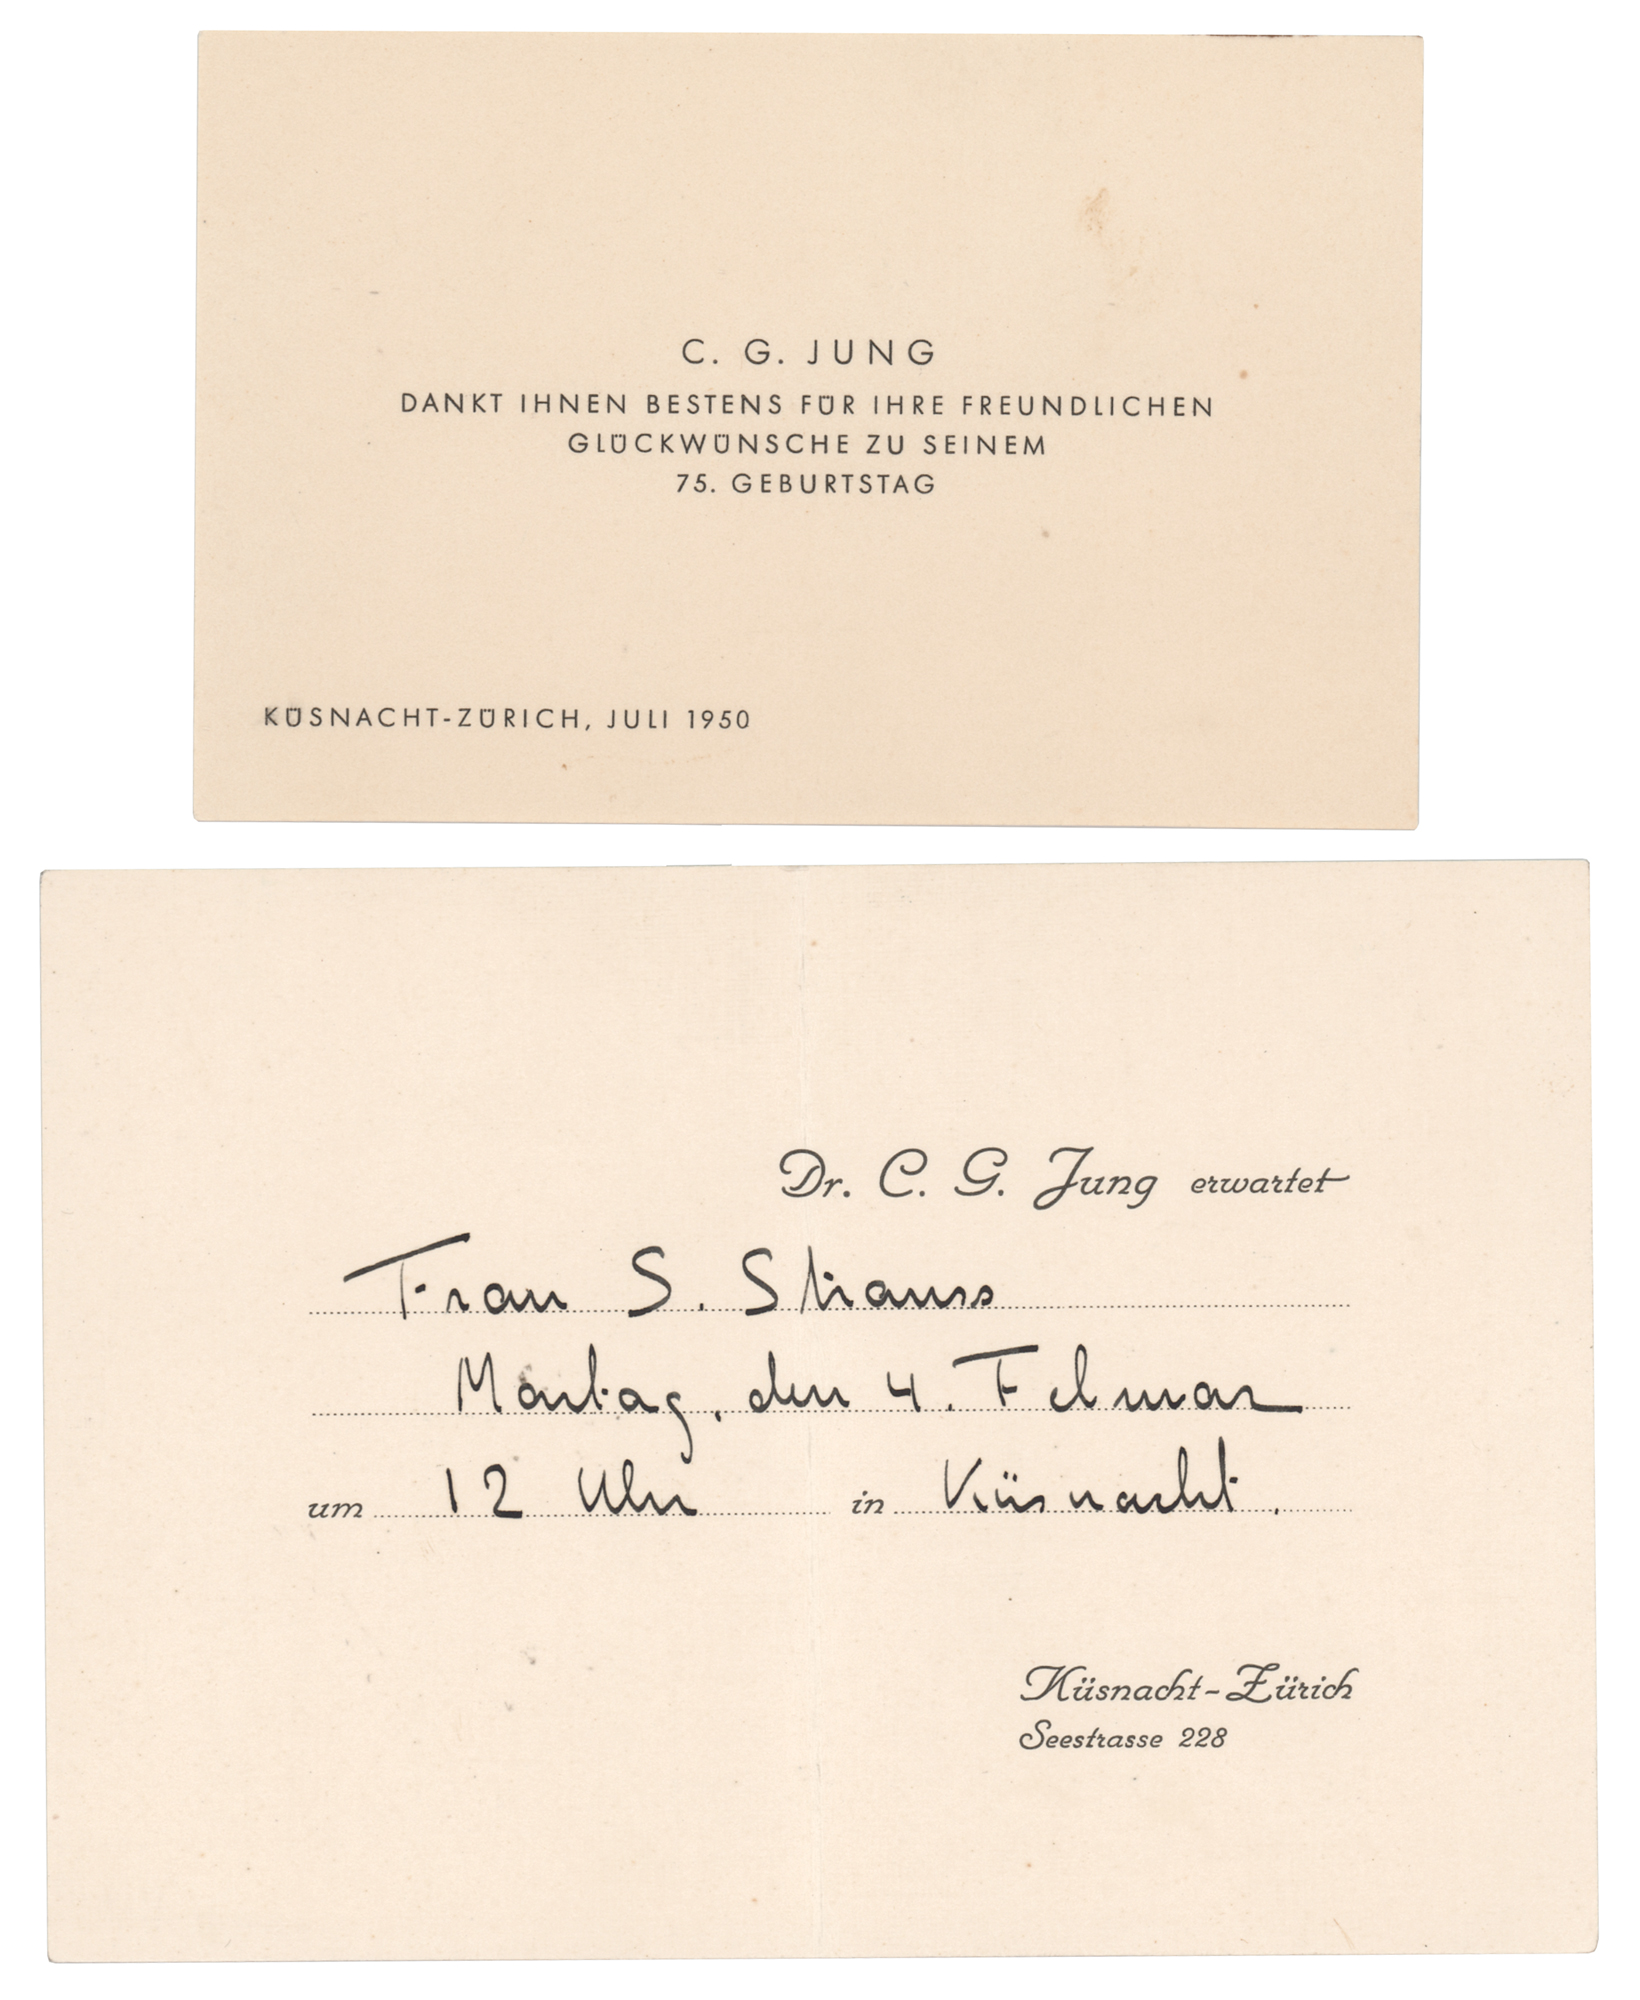 C. G. JUNG
DANKT IHNEN BESTENS FÜR IHRE FREUNDLICHEN
GLÜCKWÜNSCHE ZU SEINEM
75. GEBURTSTAG
KÜSNACHT-ZÜRICH, JULI 1950
Dr. C. G. Jung erwartet
Frau S. Strauss
Montag, den 4. Februar
um 12 Uhr in Küsnacht.
Küsnacht-Zürich
Seestrasse 228